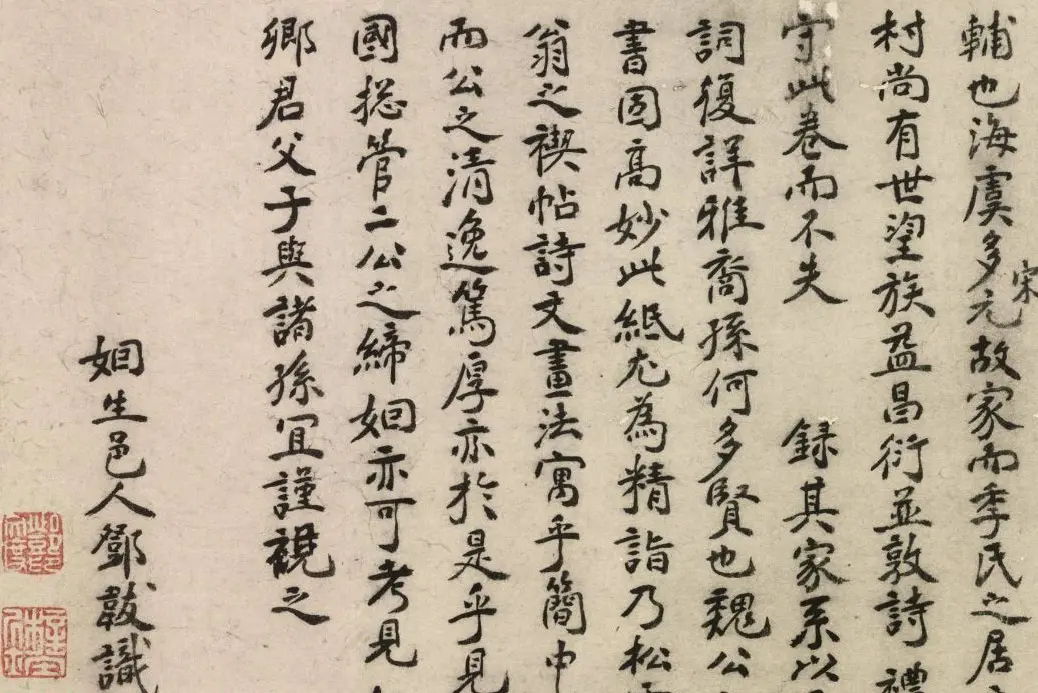 輔也海虞多宋元故家而季氏之居
村尚有世望族益昌衍並敦詩禮
守此卷而不失 録其家系以
詞復詳雅裔孫何多賢也魏公
書固高妙此紙尤為精詣乃松
翁之禊帖詩文畫法寓乎簡中
而公之清逸篤厚亦於是乎見
國捴管二公之締姻亦可考見
卿君父子與諸孫冝謹視之
姻生邑人鄧韍識